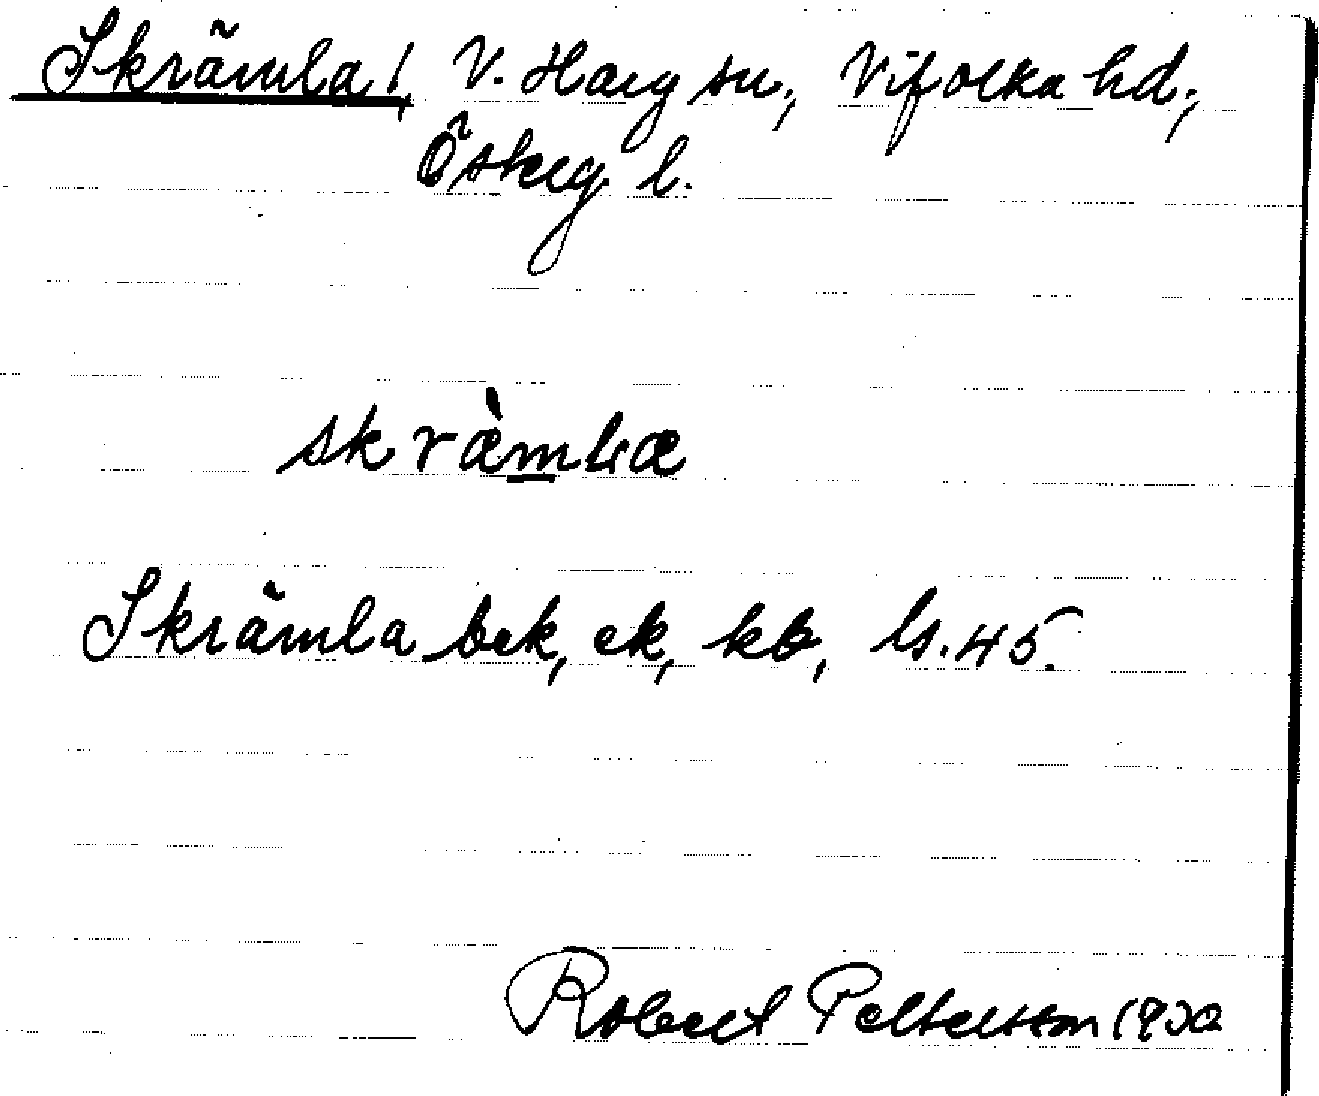 Skrämla!, V. Harg sn., Vifolka hd.,
Östkrg. l.
skræ̀mlα
Skrämla bek, ek, kb, ls. 45.
Robert Pettersson 1932